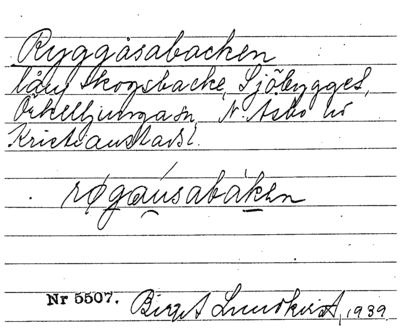 Ryggåsabacken
lång skogsbacke, Sjöbygget,
Örkelljunga sn, N. Åsbo hd
Kristianstads l.
røgaúsabáken
Nr 5507. Birgit Lundkvist, 1939